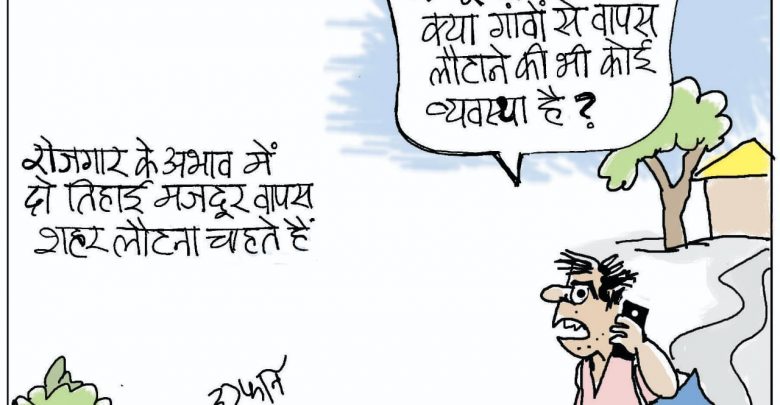 क्या गांवों से वापस
लौटाने की भी कोई
व्यवस्था है?
रोजगार के अभाव में
दो तिहाई मजदूर वापस
शहर लौटना चाहते हैं
इरफान